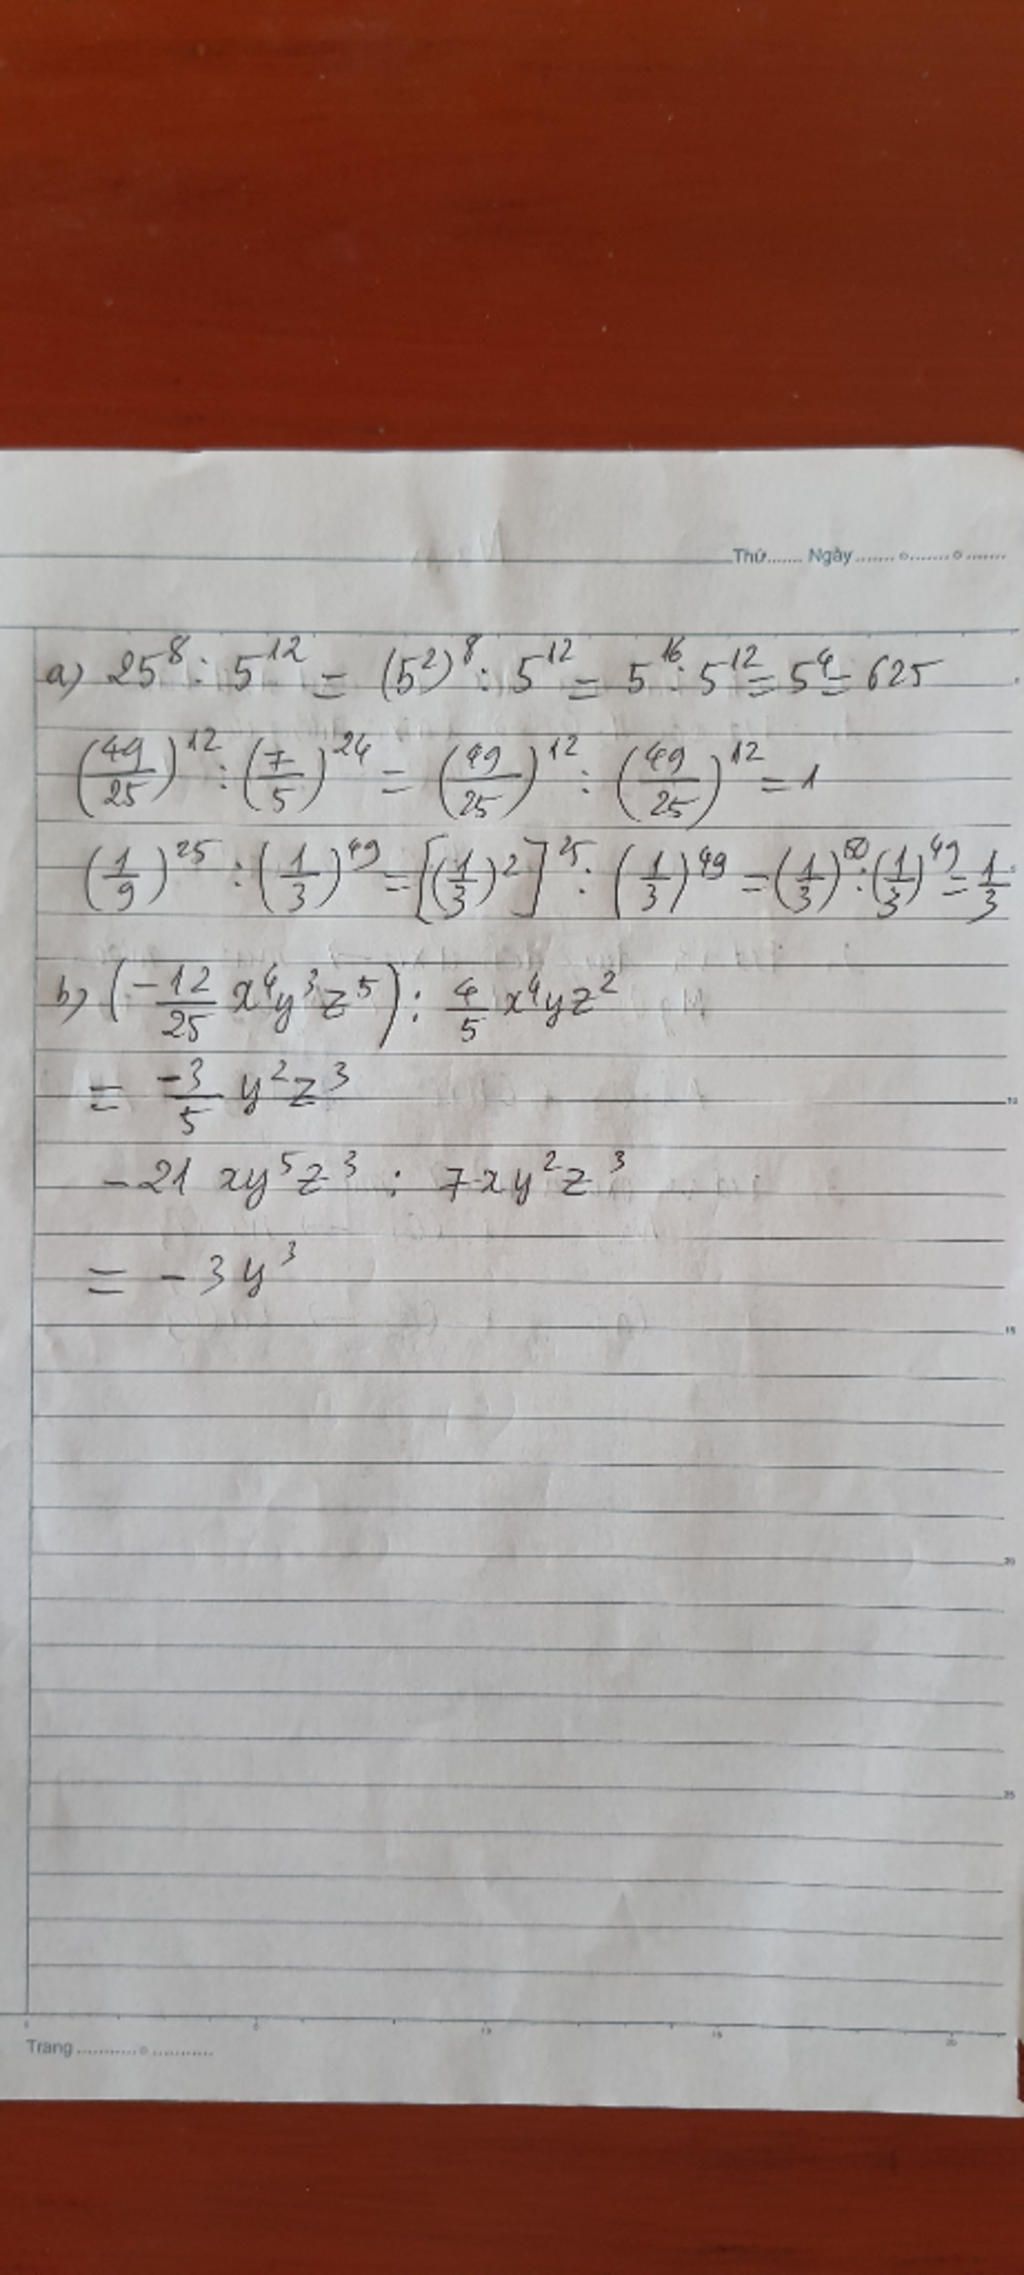 Thứ....... Ngày ....... o....... o .......
a) 25⁸ : 5¹² = (5²)⁸ : 5¹² = 5¹⁶ : 5¹² = 5⁴ = 625
(49/25)¹² : (7/5)²⁴ = (49/25)¹² : (49/25)¹² = 1
(1/9)²⁵ : (1/3)⁴⁹ = [(1/3)²]²⁵ : (1/3)⁴⁹ = (1/3)⁵⁰ : (1/3)⁴⁹ = 1/3
b) (-12/25 x⁴y³z⁵) : 4/5 x⁴yz²
= -3/5 y²z³
-21 xy⁵z³ : 7xy²z³
= -3y³
10
15
20
25
5 10 15 20
Trang ........... o ...........